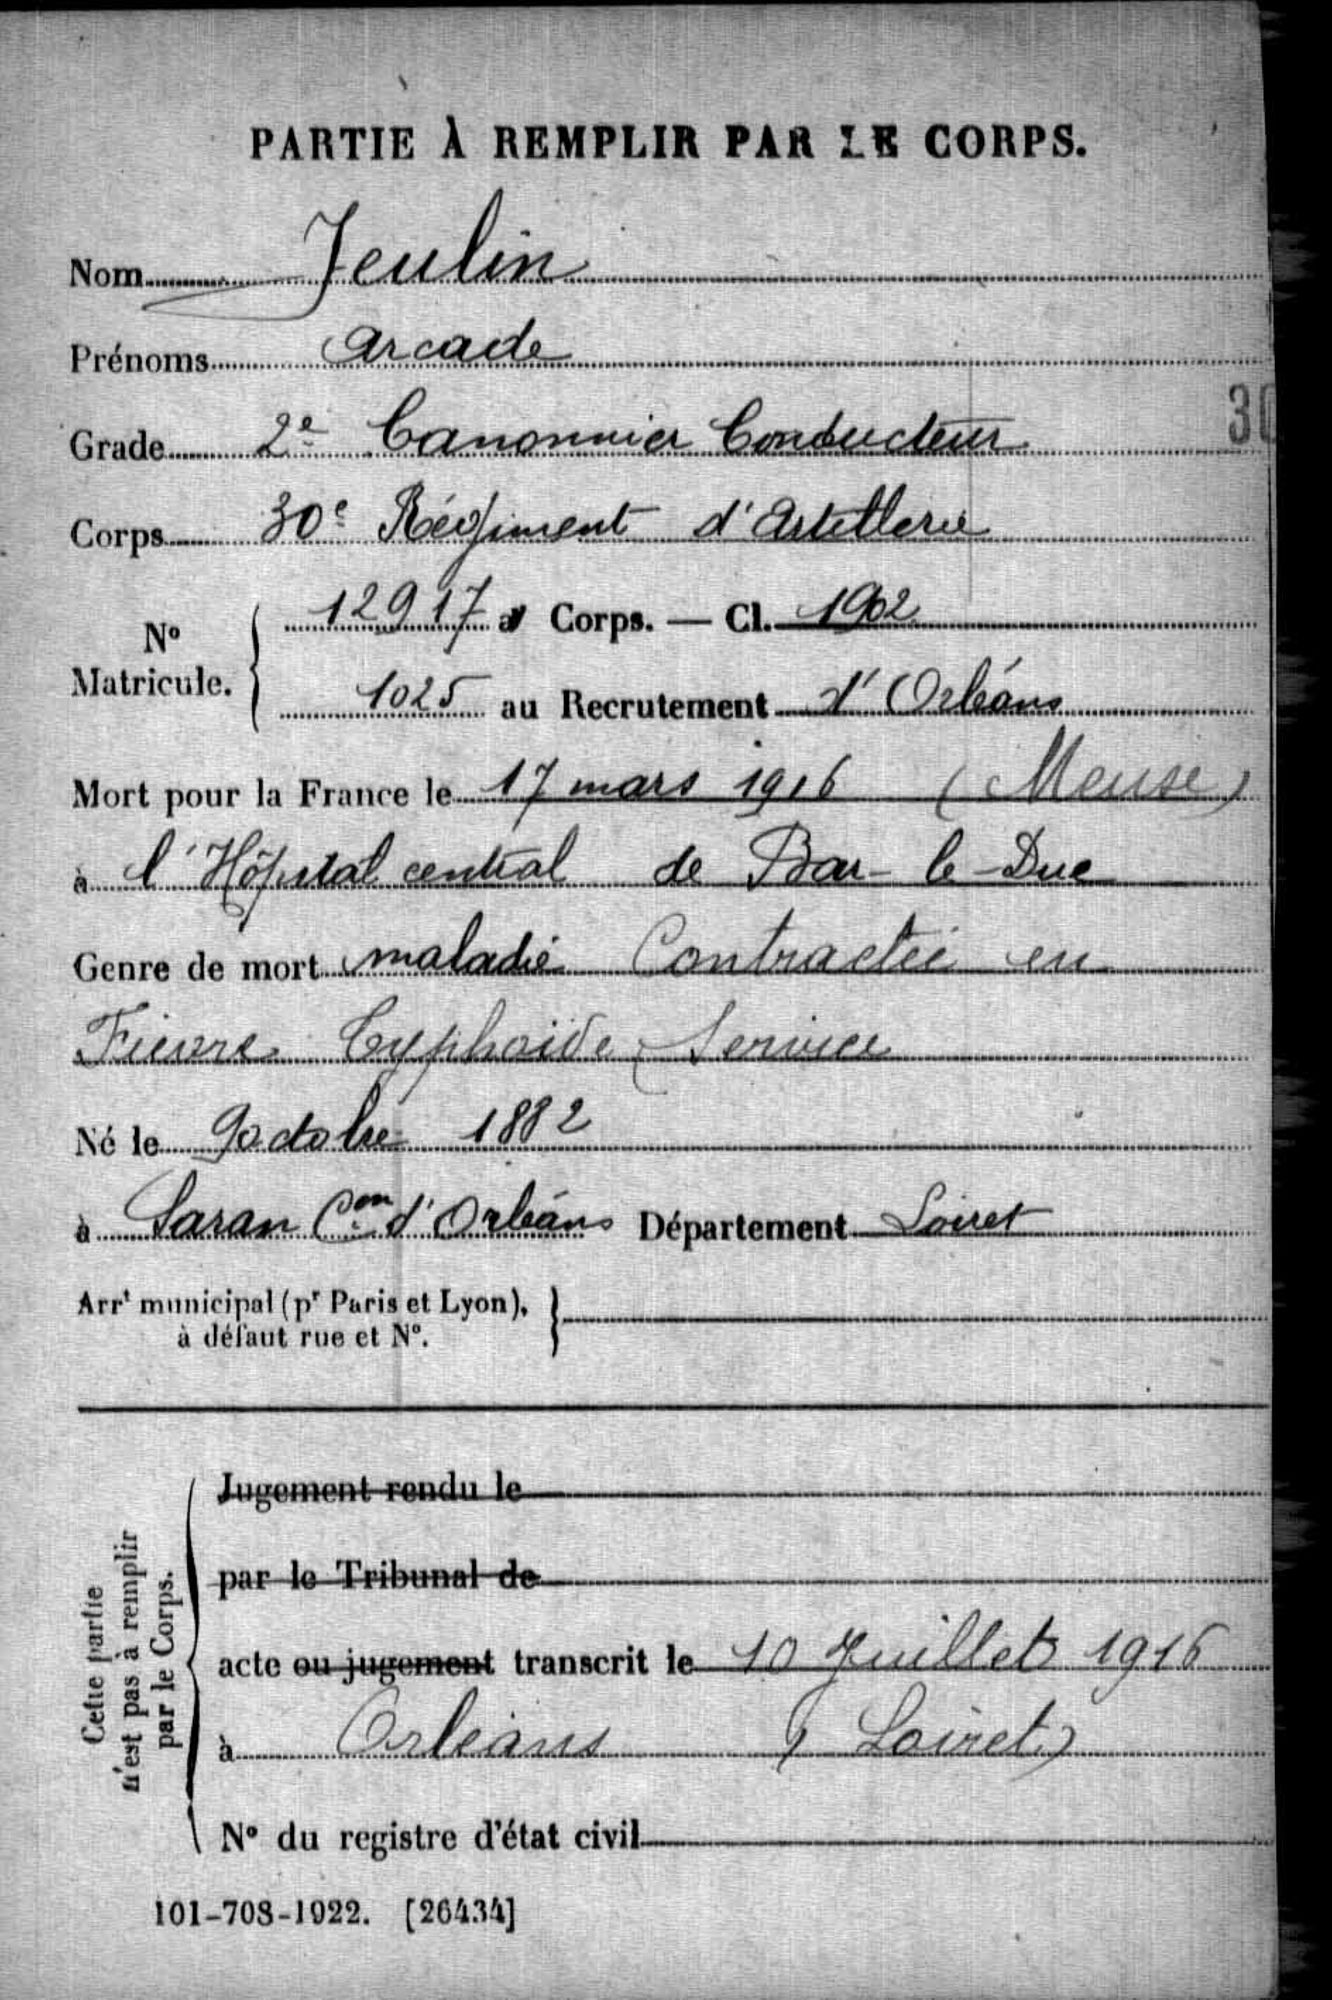 PARTIE À REMPLIR PAR LE CORPS.
Nom Jeulin
Prénoms Arcade
30
Grade 2e Canonnier Conducteur
Corps 30e Régiment d'Artillerie
12917 au Corps. — Cl. 1902
N° Matricule.
1025 au Recrutement d'Orléans
Mort pour la France le 17 mars 1916 (Meuse)
à l'Hôpital central de Bar-le-Duc
Genre de mort maladie Contractée en
Fievre Typhoïde Service
Né le 9 octobre 1882
à Saran Con d'Orléans Département Loiret
Arrt municipal (pr Paris et Lyon),
à défaut rue et N°.
Cette partie
n'est pas à remplir
par le Corps.
Jugement rendu le
par le Tribunal de
acte ou jugement transcrit le 10 Juillet 1916
à Orléans (Loiret)
N° du registre d'état civil
101-708-1922. [26434]